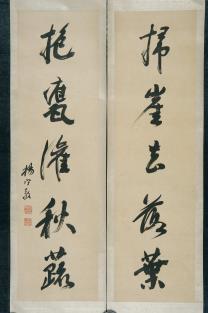 掃崖去落葉
抱甕灌秋蔬
楊守敬